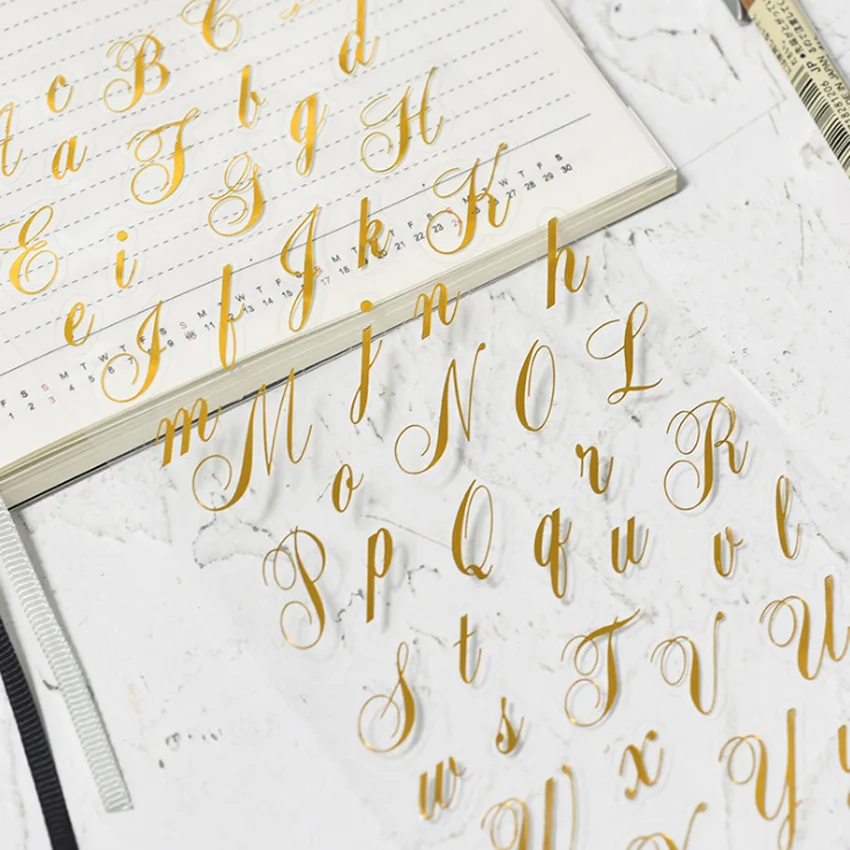 c B C
A a F b d
E i G g H
e I f J k K
F S S M T W T F S S M T W T F S
1 2 3 4 5 6 7 9 10 11 12 13 14 15 16 17 18 19 20 21 22 23 26 27 28 29 30
m M j n h
o N O L
P p Q q r R
u v l
S t T V U
w s x Y
W X
JP